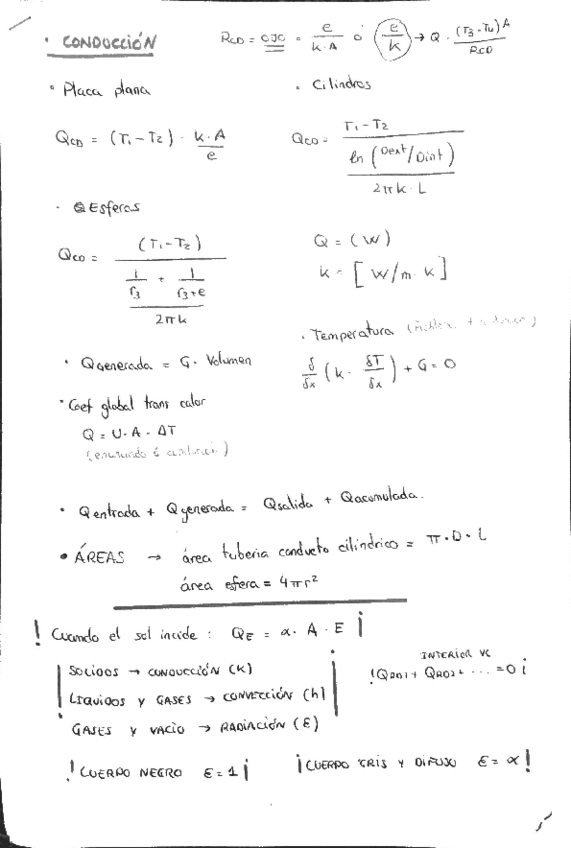 · CONDUCCIÓN
RCD = OJO = e/k·A ó e/k → Q · (T3-T4)A/RCD
· Placa plana
QCD = (T1-T2) · k·A/e
· Cilindros
QCD = T1-T2 / (ln (Dext/Dint) / 2πk·L)
· Esferas
QCD = (T1-T2) / ((1/r3 + 1/r3+e) / 2πk)
Q = (W)
k = [W/m·k]
· Temperatura
δ/δx (k · δT/δx) + G = 0
· Qgenerada = G · Volumen
· Coef global trans calor
Q = U·A·ΔT
· Qentrada + Qgenerada = Qsalida + Qacumulada.
· ÁREAS → área tuberia conducto cilíndrico = π·D·L
área esfera = 4πr²
! Cuando el sol incide : QE = α·A·E ¡
SOLIDOS → CONDUCCIÓN (K)
LIQUIDOS Y GASES → CONVECCIÓN (h)
GASES Y VACÍO → RADIACIÓN (ε)
INTERIOR VC
! QRD1 + QRD2 + ... = 0 ¡
! CUERPO NEGRO ε = 1 ¡
¡ CUERPO GRIS Y DIFUSO ε = α !